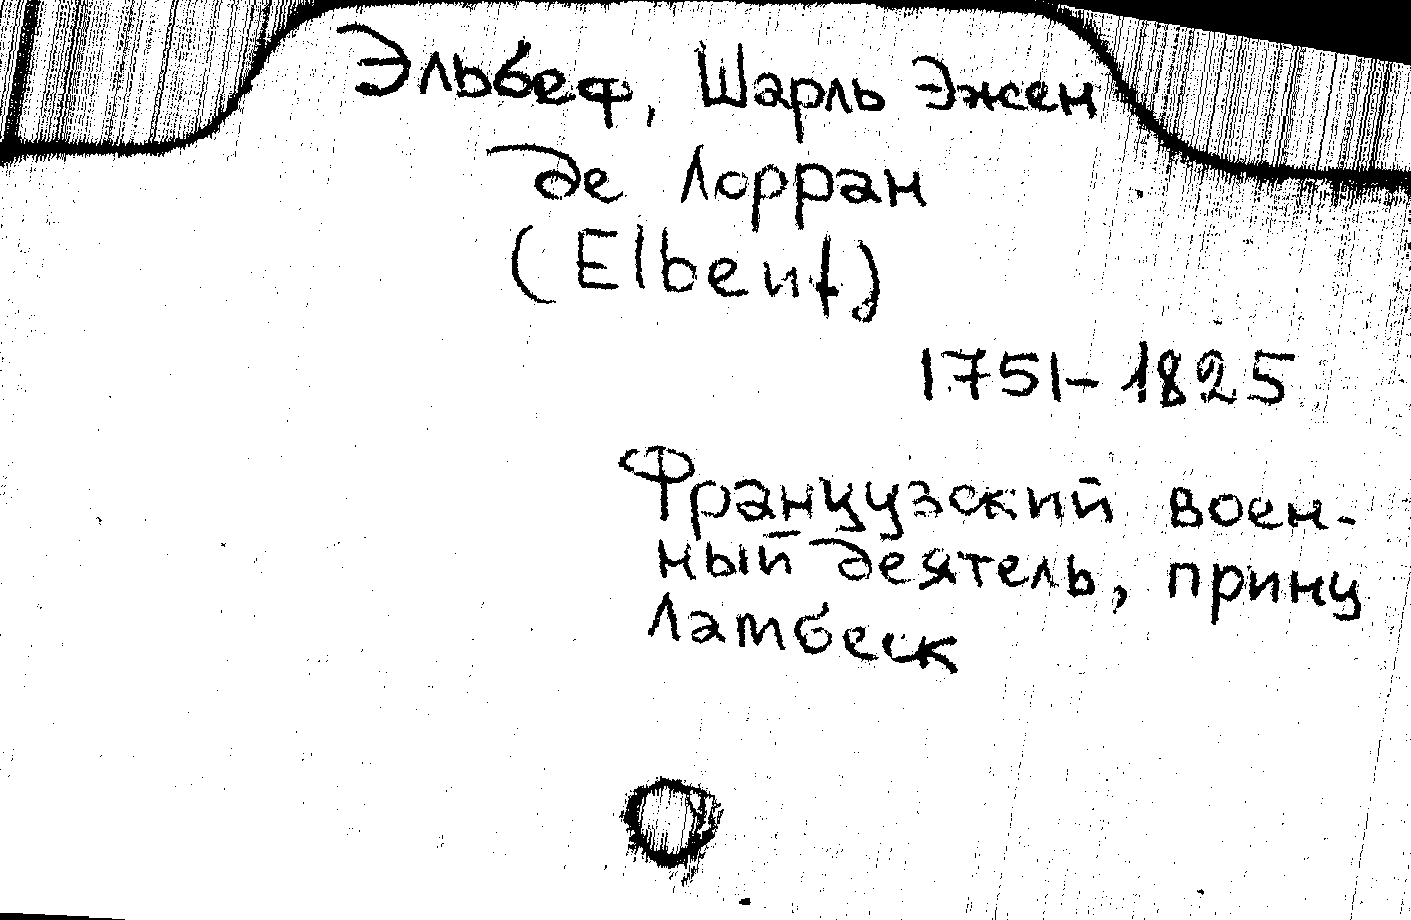 Эльбеф, Шарль Эжен
де Лорран
(Elbeuf)
1751-1825
Французский воен-
ный деятель, принц
Ламбеск